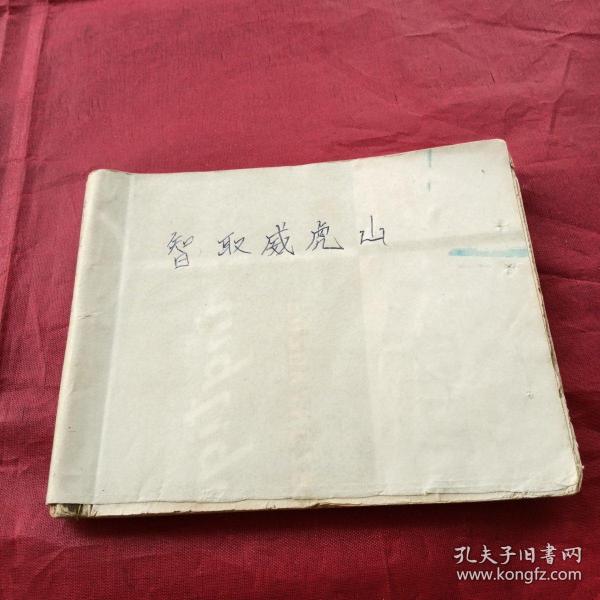 智取威虎山
孔夫子旧書网
www.kongfz.com